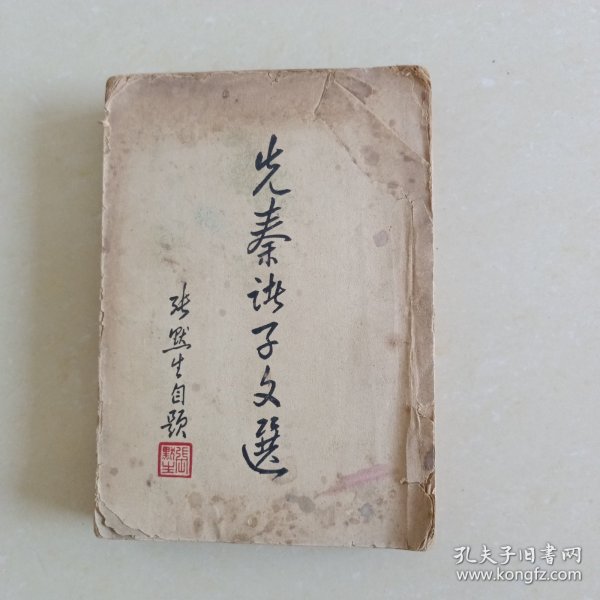 先秦諸子文選
張默生自題
張默生
孔夫子旧书网
www.kongfz.com